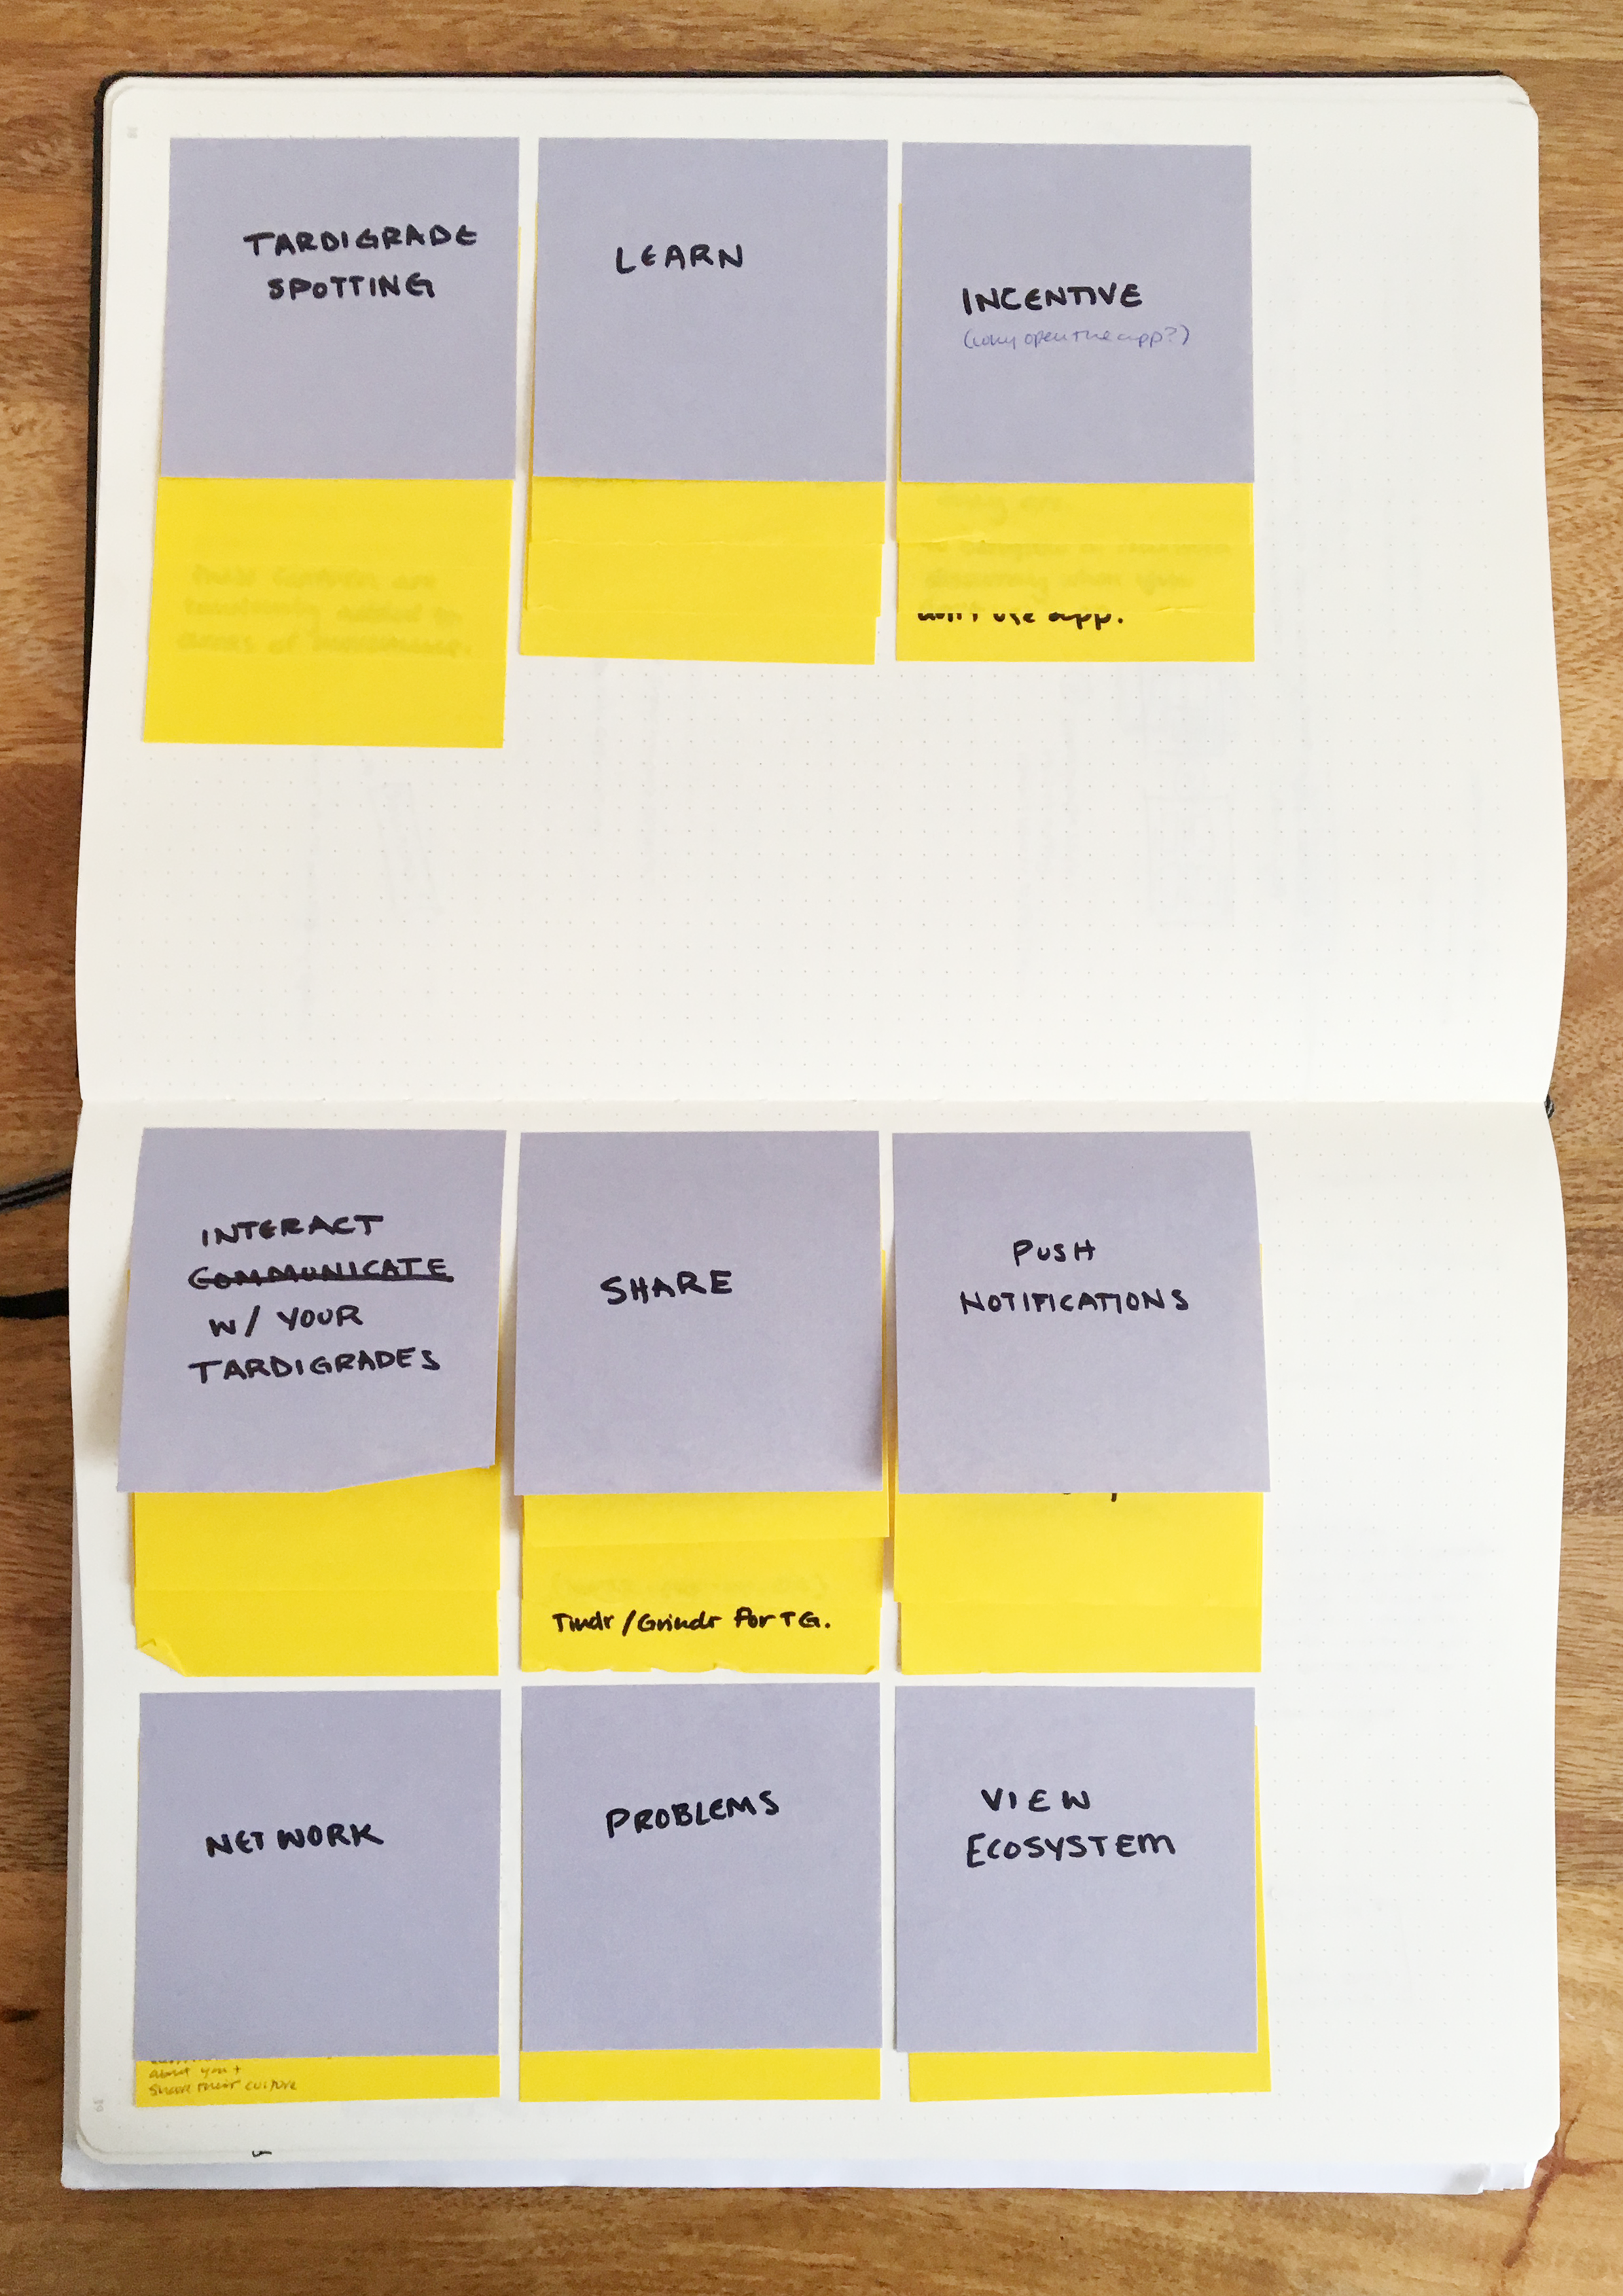 TARDIGRADE
SPOTTING
LEARN
INCENTIVE
(why open the app?)
don't use app.
INTERACT
COMMUNICATE
W/ YOUR
TARDIGRADES
SHARE
Tindr/Grindr for TG.
PUSH
NOTIFICATIONS
NETWORK
about you +
share their culture
PROBLEMS
VIEW
ECOSYSTEM